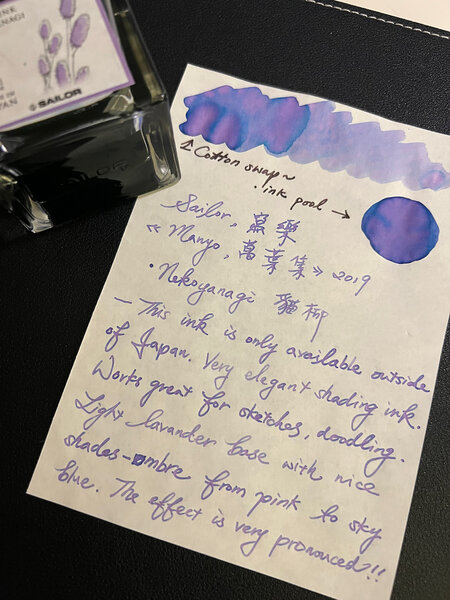 INK
NAGI
SAILOR
↑ Cotton swap~
· ink pool →
Sailor, 寫樂
《 Manyo, 萬葉集 》 2019
· Nekoyanagi 貓柳
— This ink is only available outside
of Japan. Very elegant shading ink.
Works great for sketches, doodling.
Light lavander base with nice
shades-ombre from pink to sky
blue. The effect is very pronounced!!